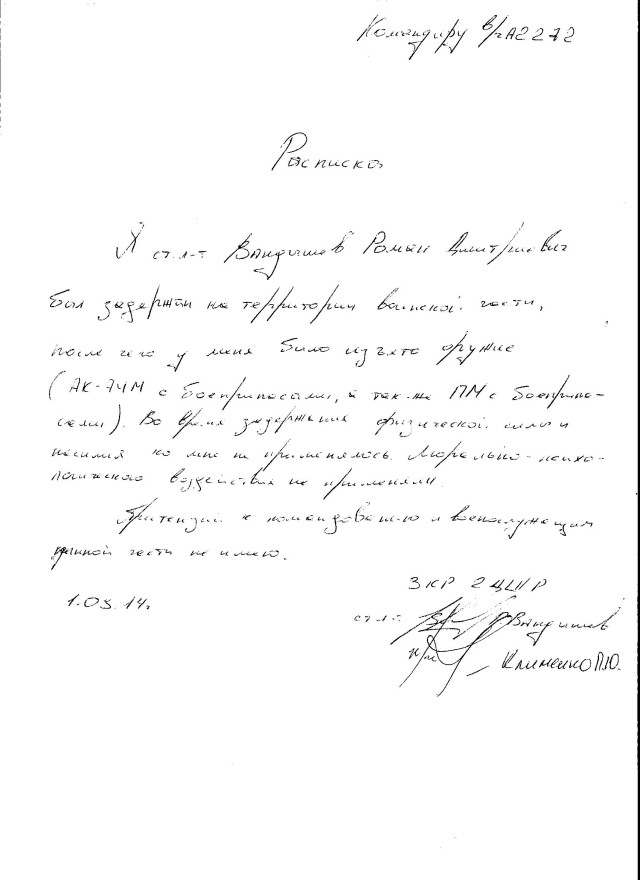 Командиру в/ч А2272
Расписка
Я ст. л-т Вандышев Роман Дмитриевич
был задержан на территории воинской части,
после чего у меня было изъято оружие
(АК-74М с боеприпасами, а так-же ПМ с боеприпа-
сами). Во время задержания физической силы и
насилия ко мне не применялось. Морально-психо-
логического воздействия не применяли.
Притензий к командованию и военнослужащим
данной части не имею.
ЗКР
1.03.14г.
ст. л-т Вандышев
Клименко П.Ю.